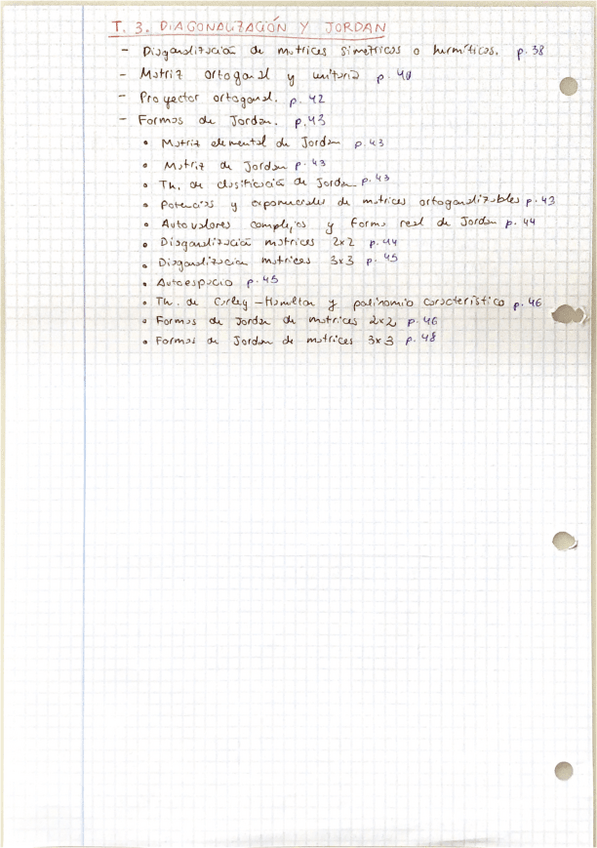 T. 3. DIAGONALIZACIÓN Y JORDAN
- Diagonalización de matrices simétricas o hermíticas. p. 38
- Matriz ortogonal y unitaria p. 40
- Proyector ortogonal. p. 42
- Formas de Jordan. p. 43
• Matriz elemental de Jordan p. 43
• Matriz de Jordan p. 43
• Th. de clasificación de Jordan p. 43
• Potencias y exponenciales de matrices ortogonalizables p. 43
• Autovalores complejos y forma real de Jordan p. 44
• Diagonalización matrices 2x2 p. 44
• Diagonalización matrices 3x3 p. 45
• Autoespacio p. 45
• Th. de Cayley-Hamilton y polinomio característico p. 46
• Formas de Jordan de matrices 2x2 p. 46
• Formas de Jordan de matrices 3x3 p. 48